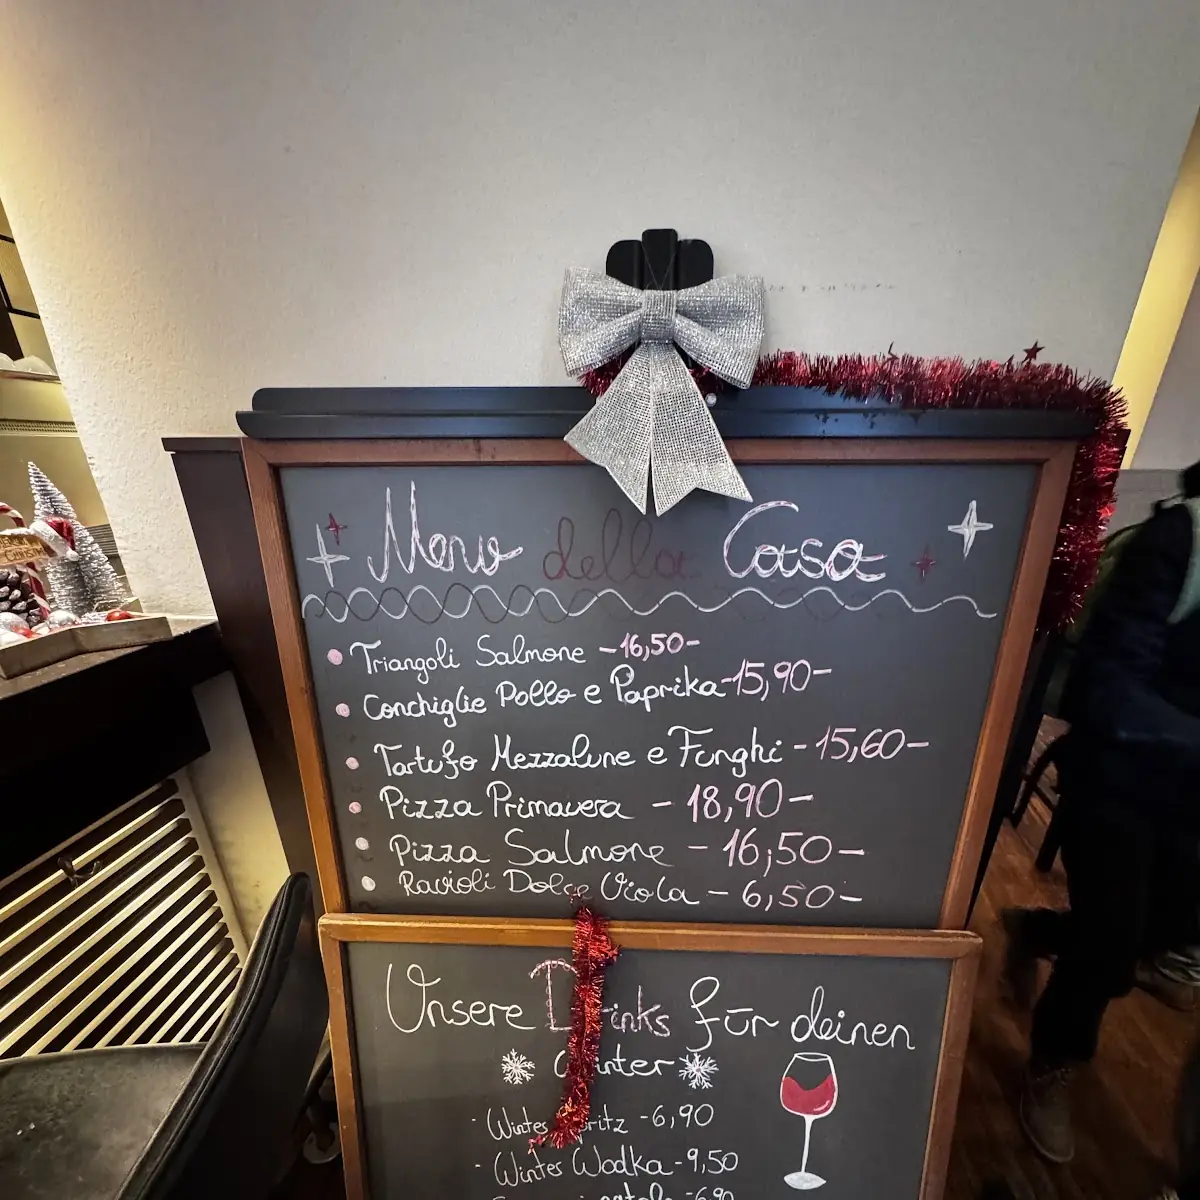 Menu della Casa
Triangoli Salmone -16,50-
Conchiglie Pollo e Paprika -15,90-
Tartufo Mezzalune e Funghi - 15,60-
Pizza Primavera - 18,90-
Pizza Salmone - 16,50-
Ravioli Dolce Viola - 6,50-
Unsere Drinks für deinen
Winter
- Winter -6,90
- Winter Wodka - 9,50
-6,90